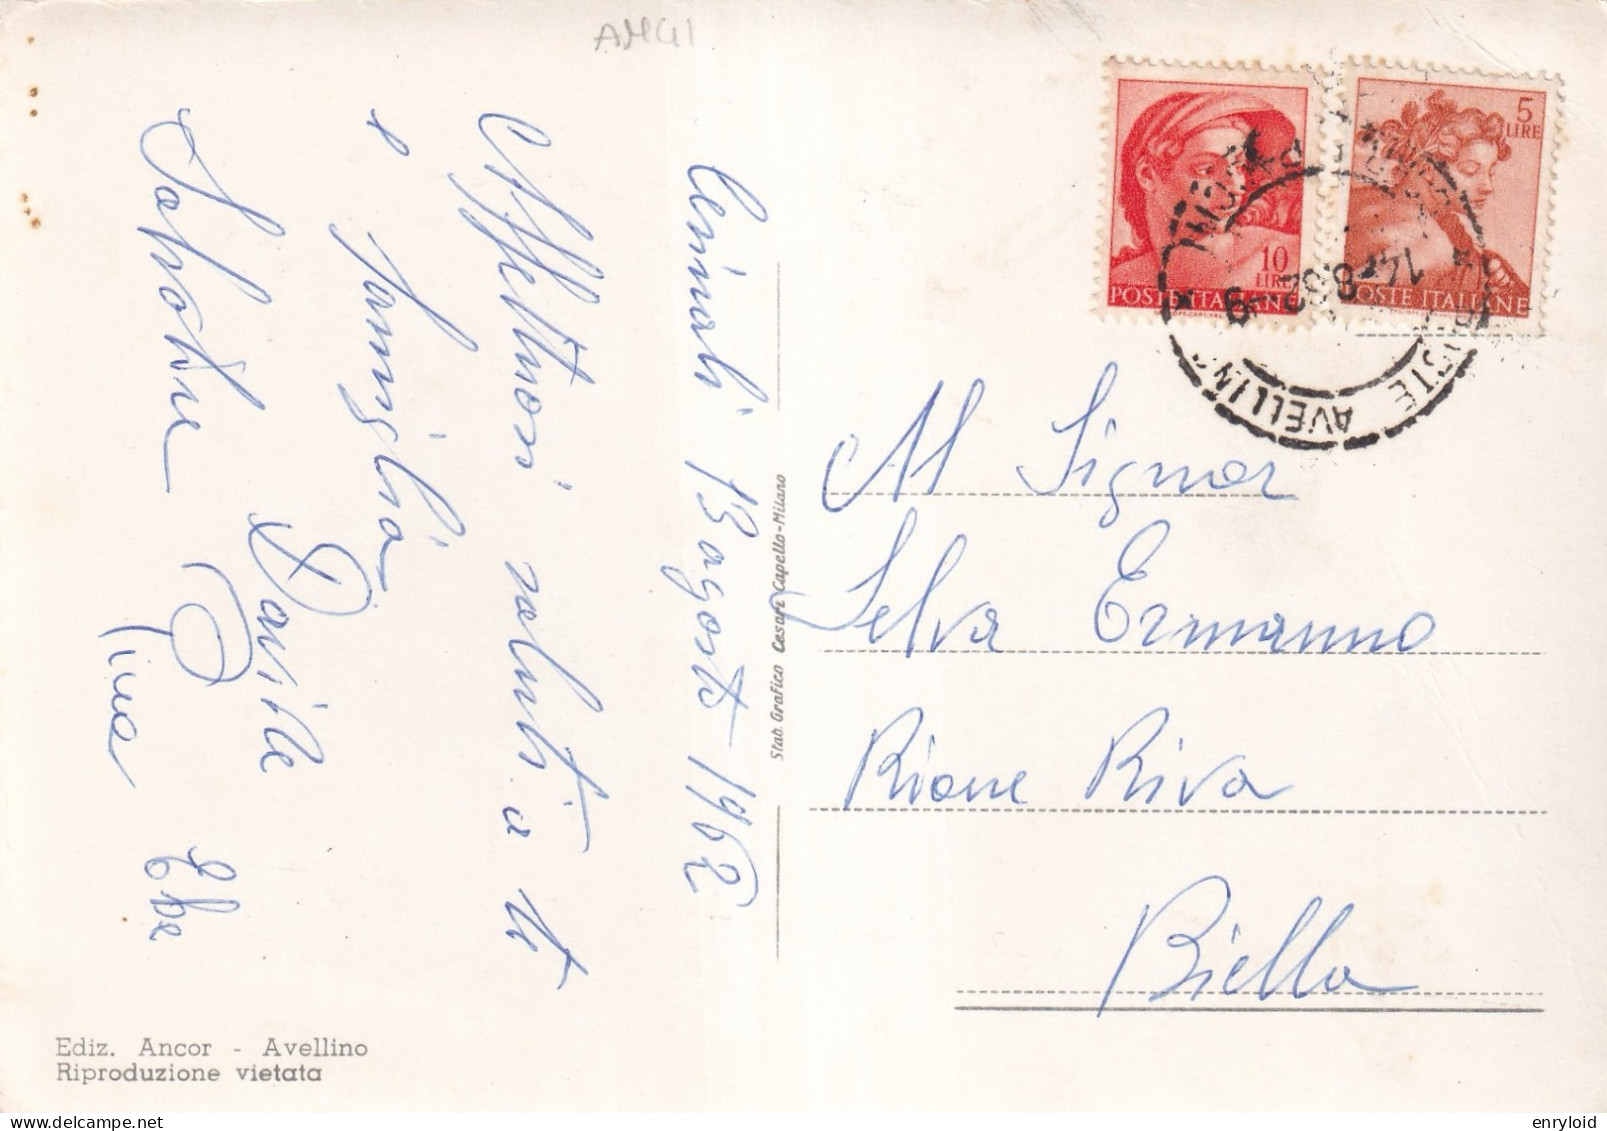 AMGI
13 agosto 1962
Affettuosi saluti a te
e famiglia
Davide
Salvatore
Ebe
Stab. Grafico Cesare Capello - Milano
Ediz. Ancor - Avellino
Riproduzione vietata
10
LIRE
POSTE ITALIANE
5
LIRE
POSTE ITALIANE
POSTE AVELLINO
14.8.62
Al Signor
Selva Ermanno
Rione Riva
Biella
enryloid